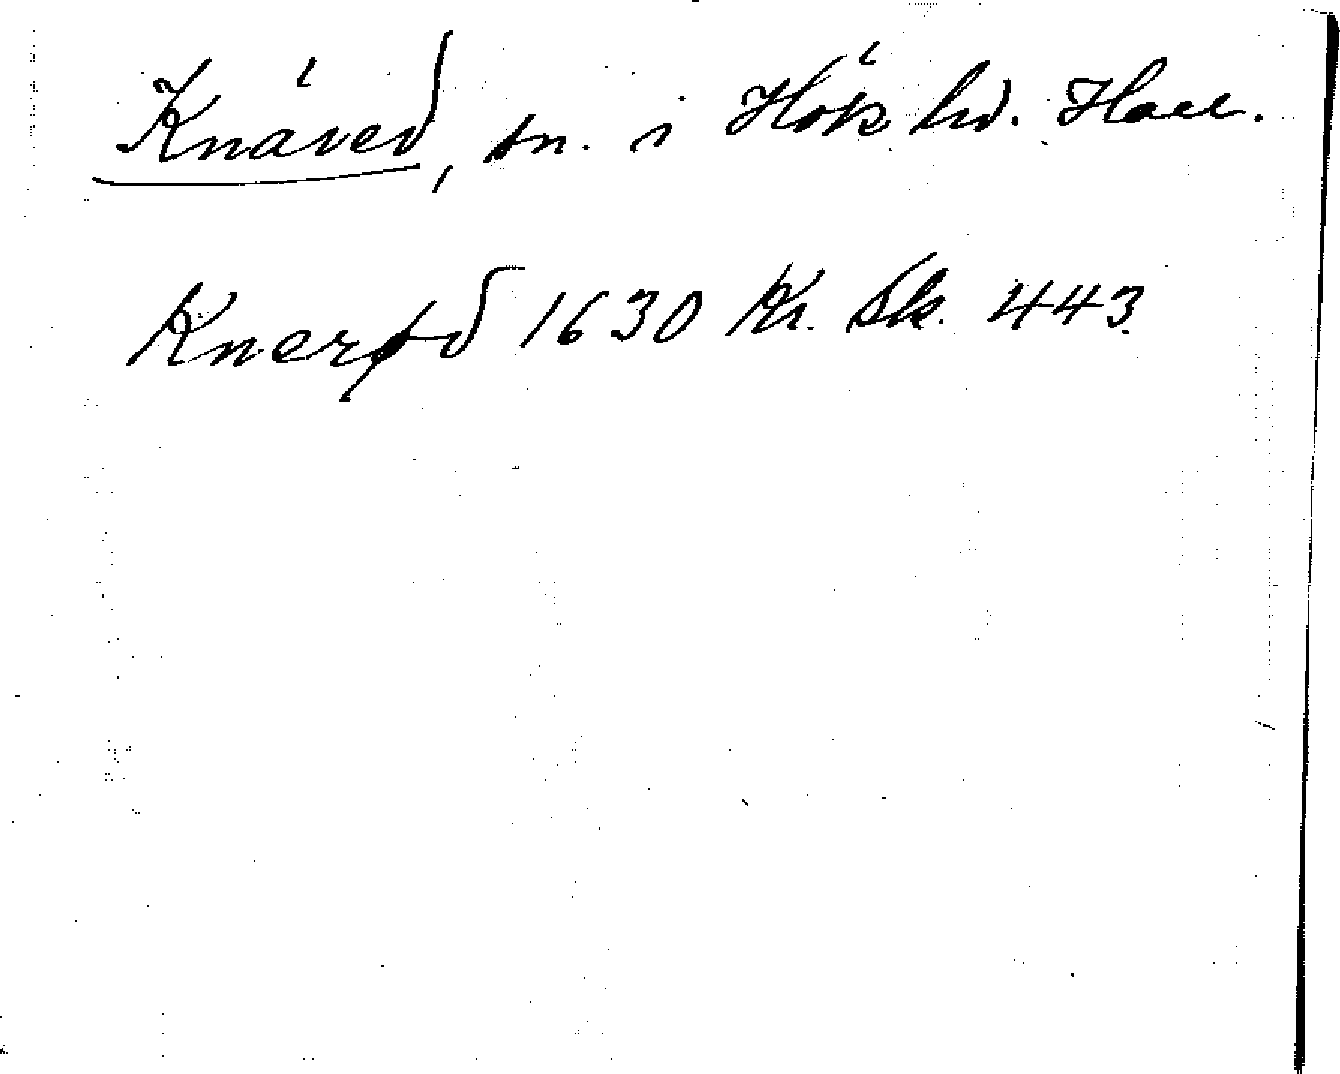 Knäred, sn. i Höks hd. Hall.
Knerød 1630 Kr. Sk. 443.